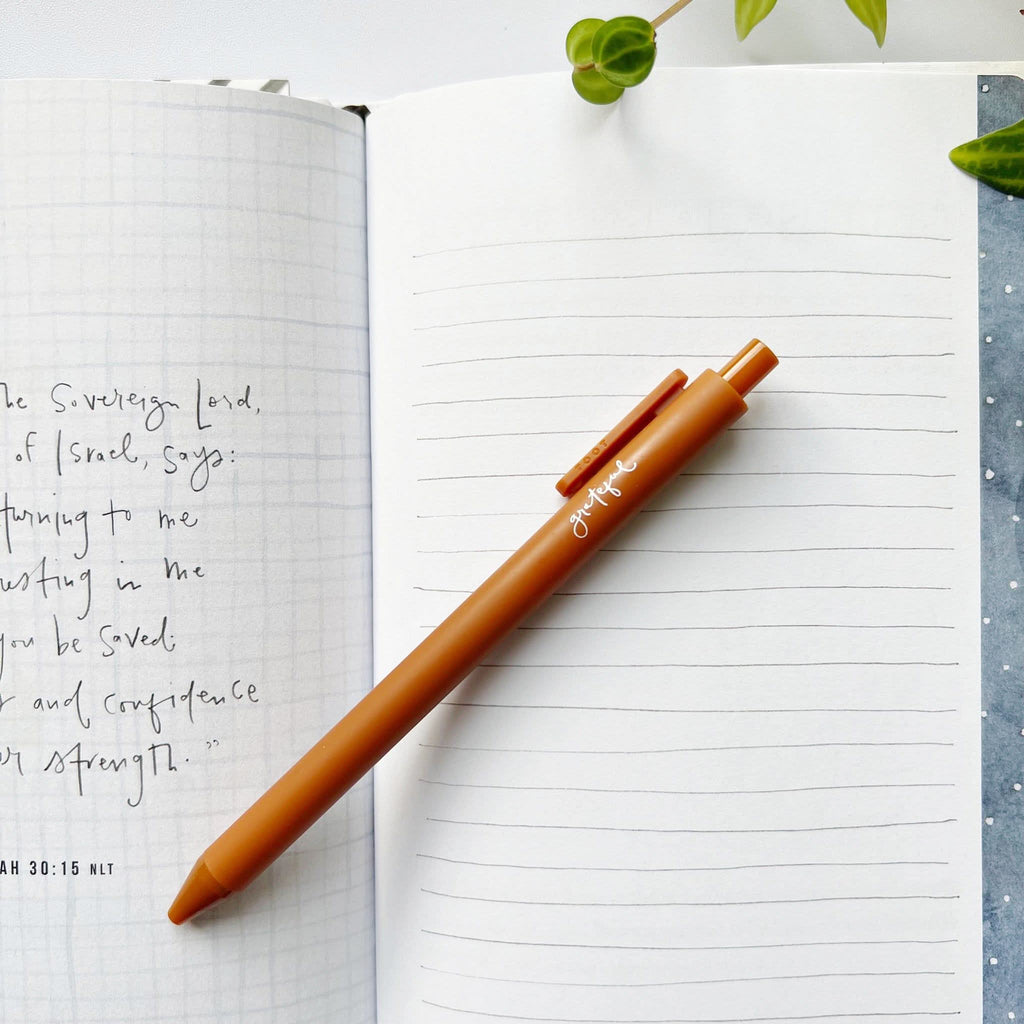 he Sovereign Lord,
of Israel, says:
turning to me
usting in me
you be saved.
and confidence
or strength."
AH 30:15 NLT
grateful